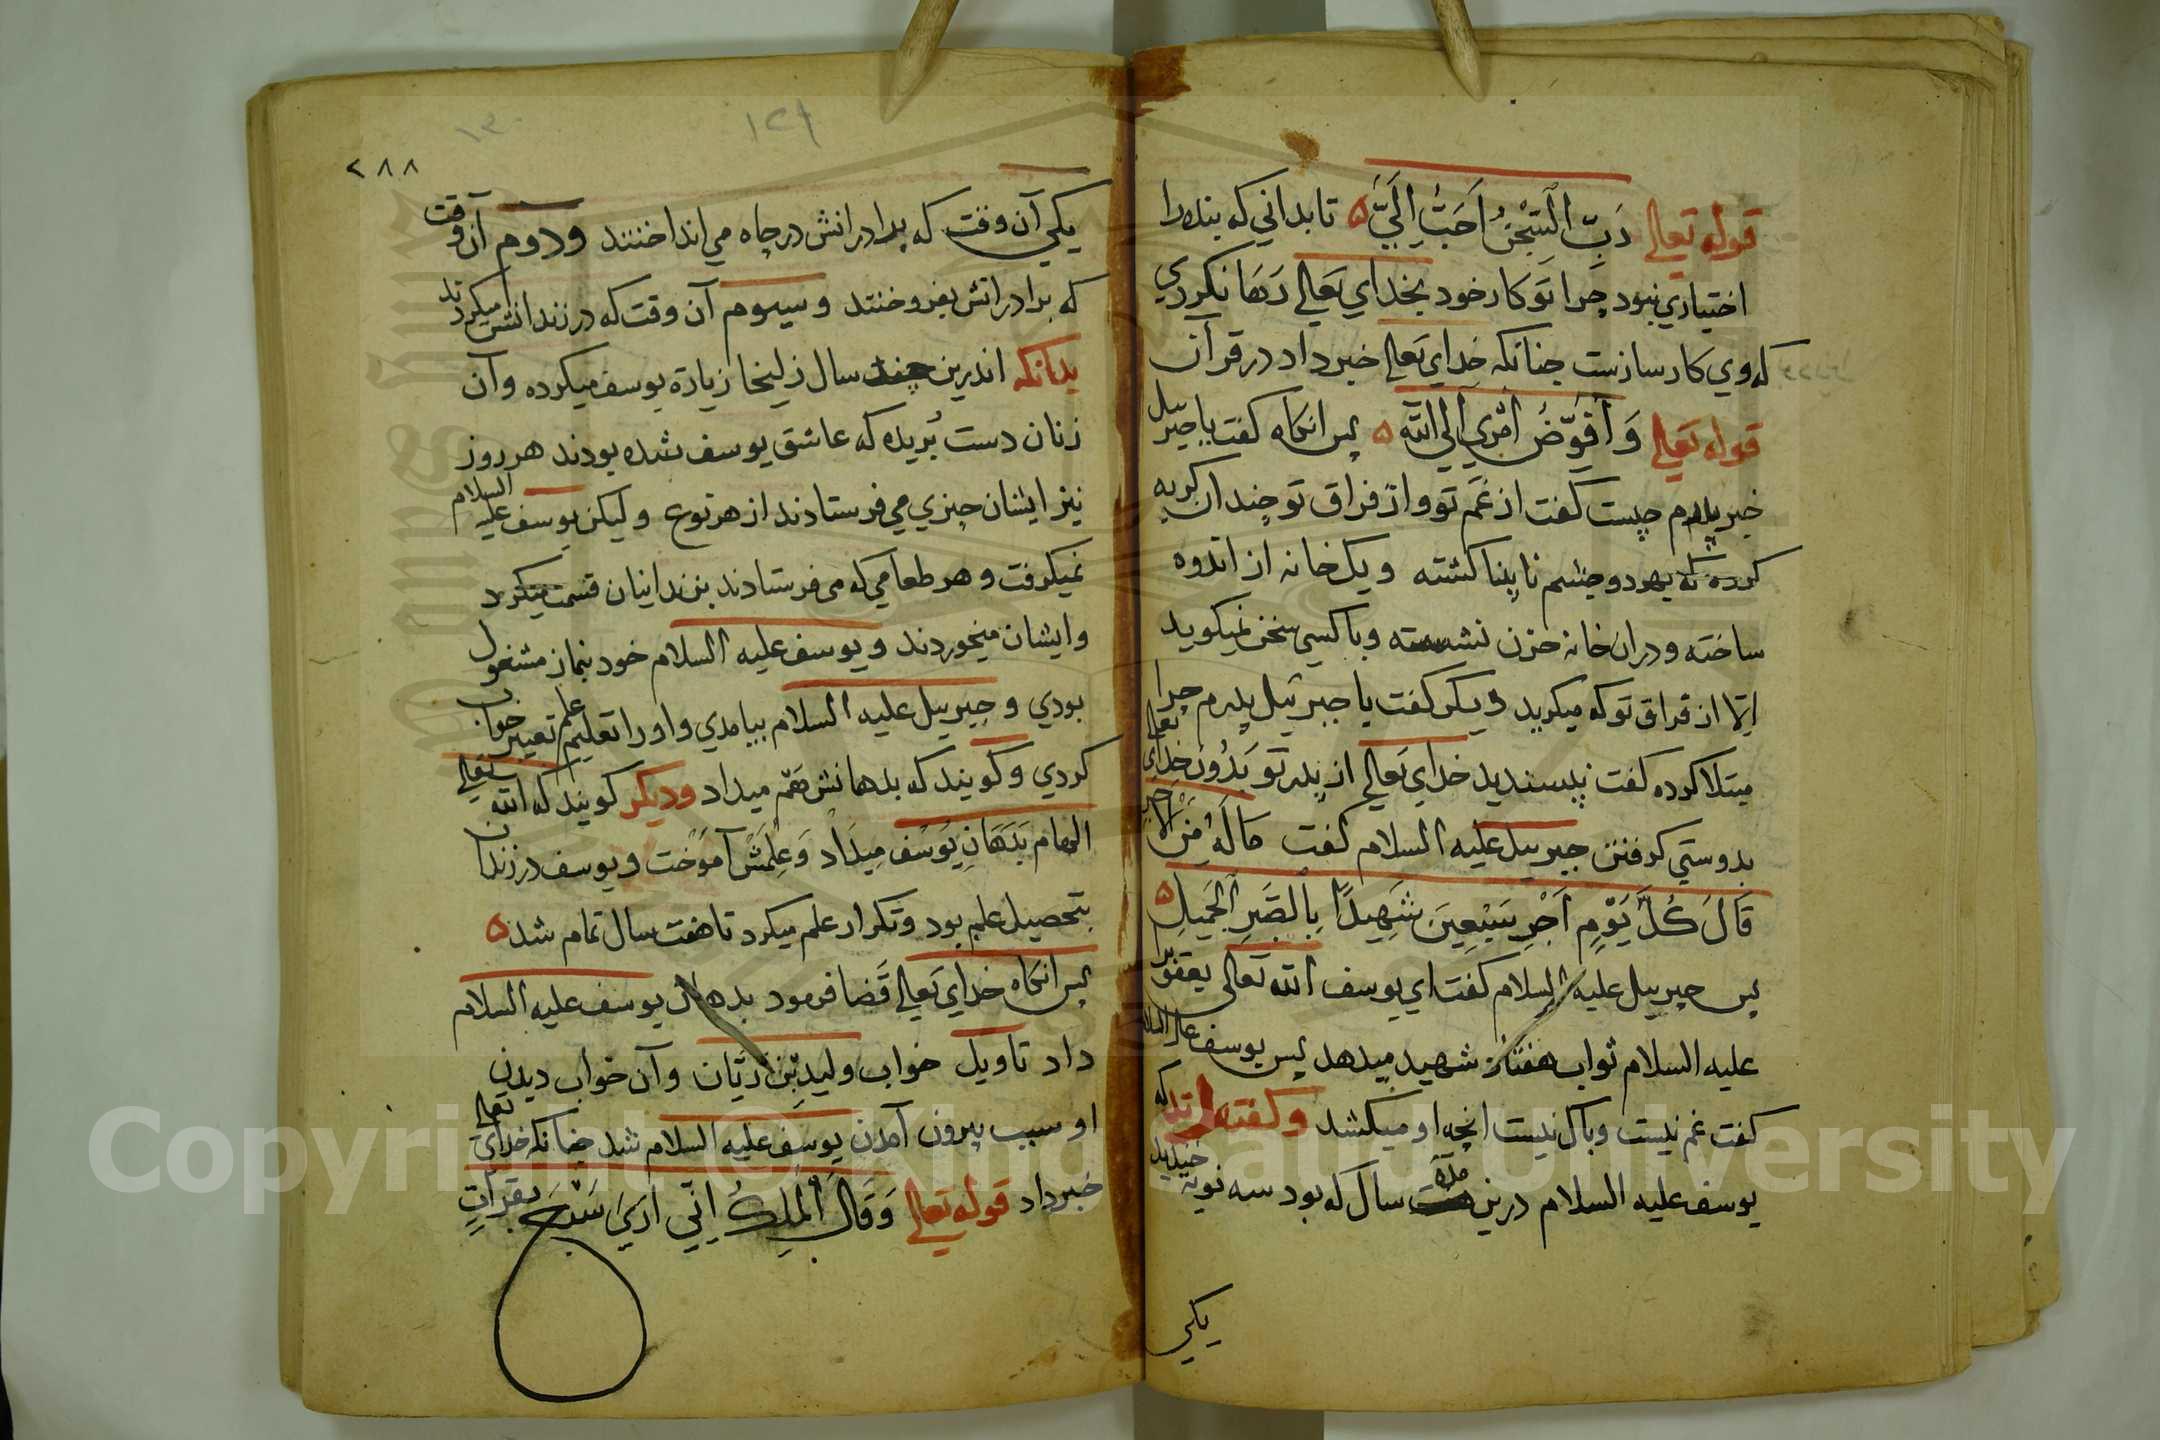 قوله تعالی رَبِّ السِّجْنُ اَحَبُّ اِلَیَّ ۵ تا بدانی که بنده را
اختیاری نبود چرا تو کار خود بخدای تعالی رها نکردی
که وی کارسازست چنانکه خدای تعالی خبر داد در قرآن
قوله تعالی وَ اُفَوِّضُ اَمْرِي اِلَی اللّٰه ۵ پس انکاه کفت یا جبریل
خبر پدرم چیست کفت از غم تو و از فراق تو چندان کریه
کرده که بهر دو چشم نابینا کشته و یک خانه از اندوه
ساخته و دران خانه حزن نشسته و با کسی سخن نمیکوید
الا از فراق تو که میکرید دیکر کفت یا جبرئیل پدرم چرا
مبتلا کرده کفت نپسندید خدای تعالی از پدر تو بدون خدای تعالی
بدوستی کرفتن جبرییل علیه السلام کفت مَا لَهُ مِنَ الْاَجْرِ
قَالَ کُلَّ یَوْمٍ اَجْرِ سَبْعِینَ شَهِیدًا بِالصَّبْرِ الْجَمِیلِ ۵
پس جبرییل علیه السلام کفت ای یوسف الله تعالی یعقوب را
علیه السلام ثواب هفتاد شهید میدهد پس یوسف علیه السلام
کفت غم نیست و باک نیست انچه او میکشد و کفته اند که
یوسف علیه السلام درین مدة سال که بود سه نوبة خندید
یکی
۲۸۸
یکی آن وقت که برادرانش در چاه می انداختند و دوم آن وقت
که برادرانش بفروختند و سیوم آن وقت که در زندانش میکردند
بدانکه اندرین چند سال زلیخا زیارة یوسف میکرده و آن
زنان دست بُریده که عاشق یوسف شده بودند هر روز
نیز ایشان چیزی می فرستادند از هر نوع و لیکن یوسف علیه السلام
نمیکرفت و هر طعامی که می فرستادند بزندانیان قسمت میکرد
و ایشان میخوردند و یوسف علیه السلام خود بنماز مشغول
بودی و جبرییل علیه السلام بیامدی و او را تعلیم علم تعبیر خواب
کردی و کویند که بدهانش هم میداد و دیکر کویند که الله تعالی
الهام بدهان یوسف میداد و علمش آموخت و یوسف در زندان
بتحصیل علم بود و تکرار علم میکرد تا هفت سال تمام شد ۵
پس انکاه خدای تعالی قضا فرمود بدهان یوسف علیه السلام
داد تاویل خواب ولید بن ریّان و آن خواب دیدن
او سبب بیرون آمدن یوسف علیه السلام شد چنانکه خدای تعالی
خبر داد قوله تعالی وَقَالَ الْمَلِکُ اِنِّي اَرَی سَبْعَ بَقَرَاتٍ